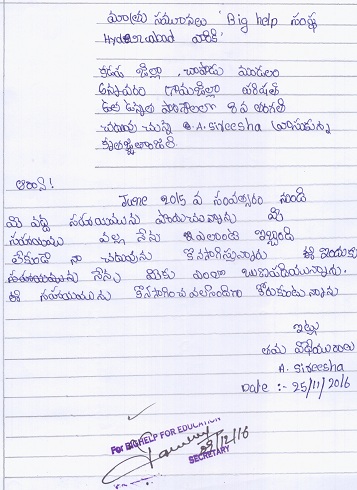 మాతృ సమానులు 'Big help సంస్థ
Hyderabad వారికి
కడప జిల్లా, చాపాడు మండలం
అన్నవరం గ్రామం జిల్లా పరిషత్
ఉన్నత పాఠశాలలో 8 వ తరగతి
చదువు చున్న A. Sireesha వ్రాయునది
కృతజ్ఞతాంజలి.
ఆర్యా!
June 2015 వ సంవత్సరం నుండి
మీ వద్ద సహాయమును పొందుచున్నాను మీ
సహాయము వల్ల నేను ఎలాంటి ఇబ్బంది
లేకుండా నా చదువును కొనసాగిస్తున్నాను ఈ
సహాయమునకు నేను మీకు ఎంతో ఋణపడియున్నాను.
ఈ సహాయమును కొనసాగించవలసిందిగా కోరుకుంటున్నాను
ఇట్లు
తమ విధేయురాలు
A. Sireesha
Date :- 25/11/2016
For BIGHELP FOR EDUCATION
29/12/16
SECRETARY